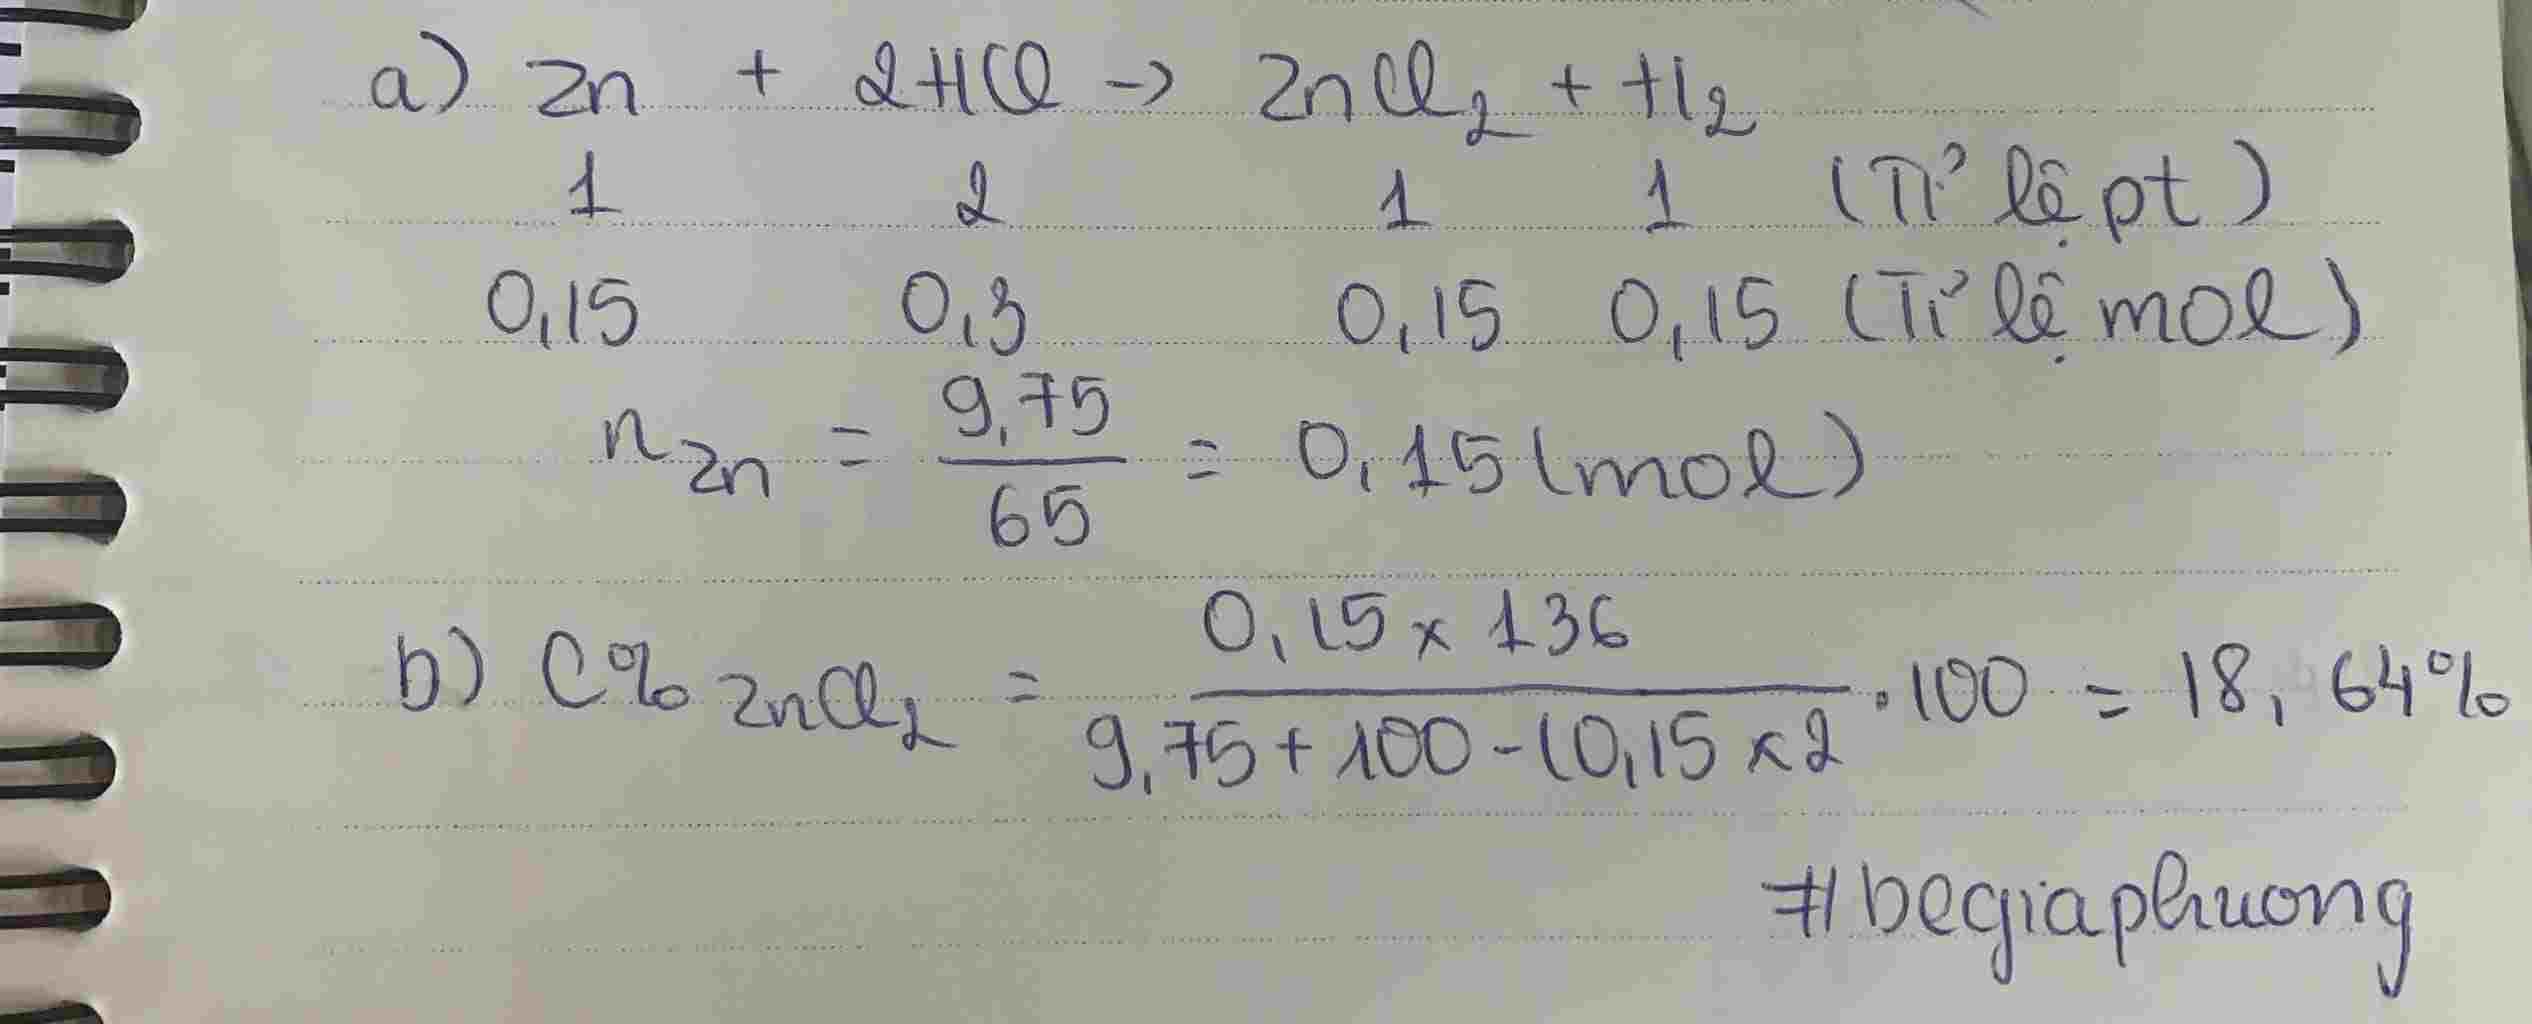 a) Zn + 2HCl → ZnCl₂ + H₂
1 2 1 1 (Tỉ lệ pt)
0,15 0,3 0,15 0,15 (Tỉ lệ mol)
n Zn = 9,75 / 65 = 0,15 (mol)
b) C% ZnCl₂ = 0,15 x 136 / 9,75 + 100 - (0,15 x 2 . 100 = 18,64%
#begiaphuong